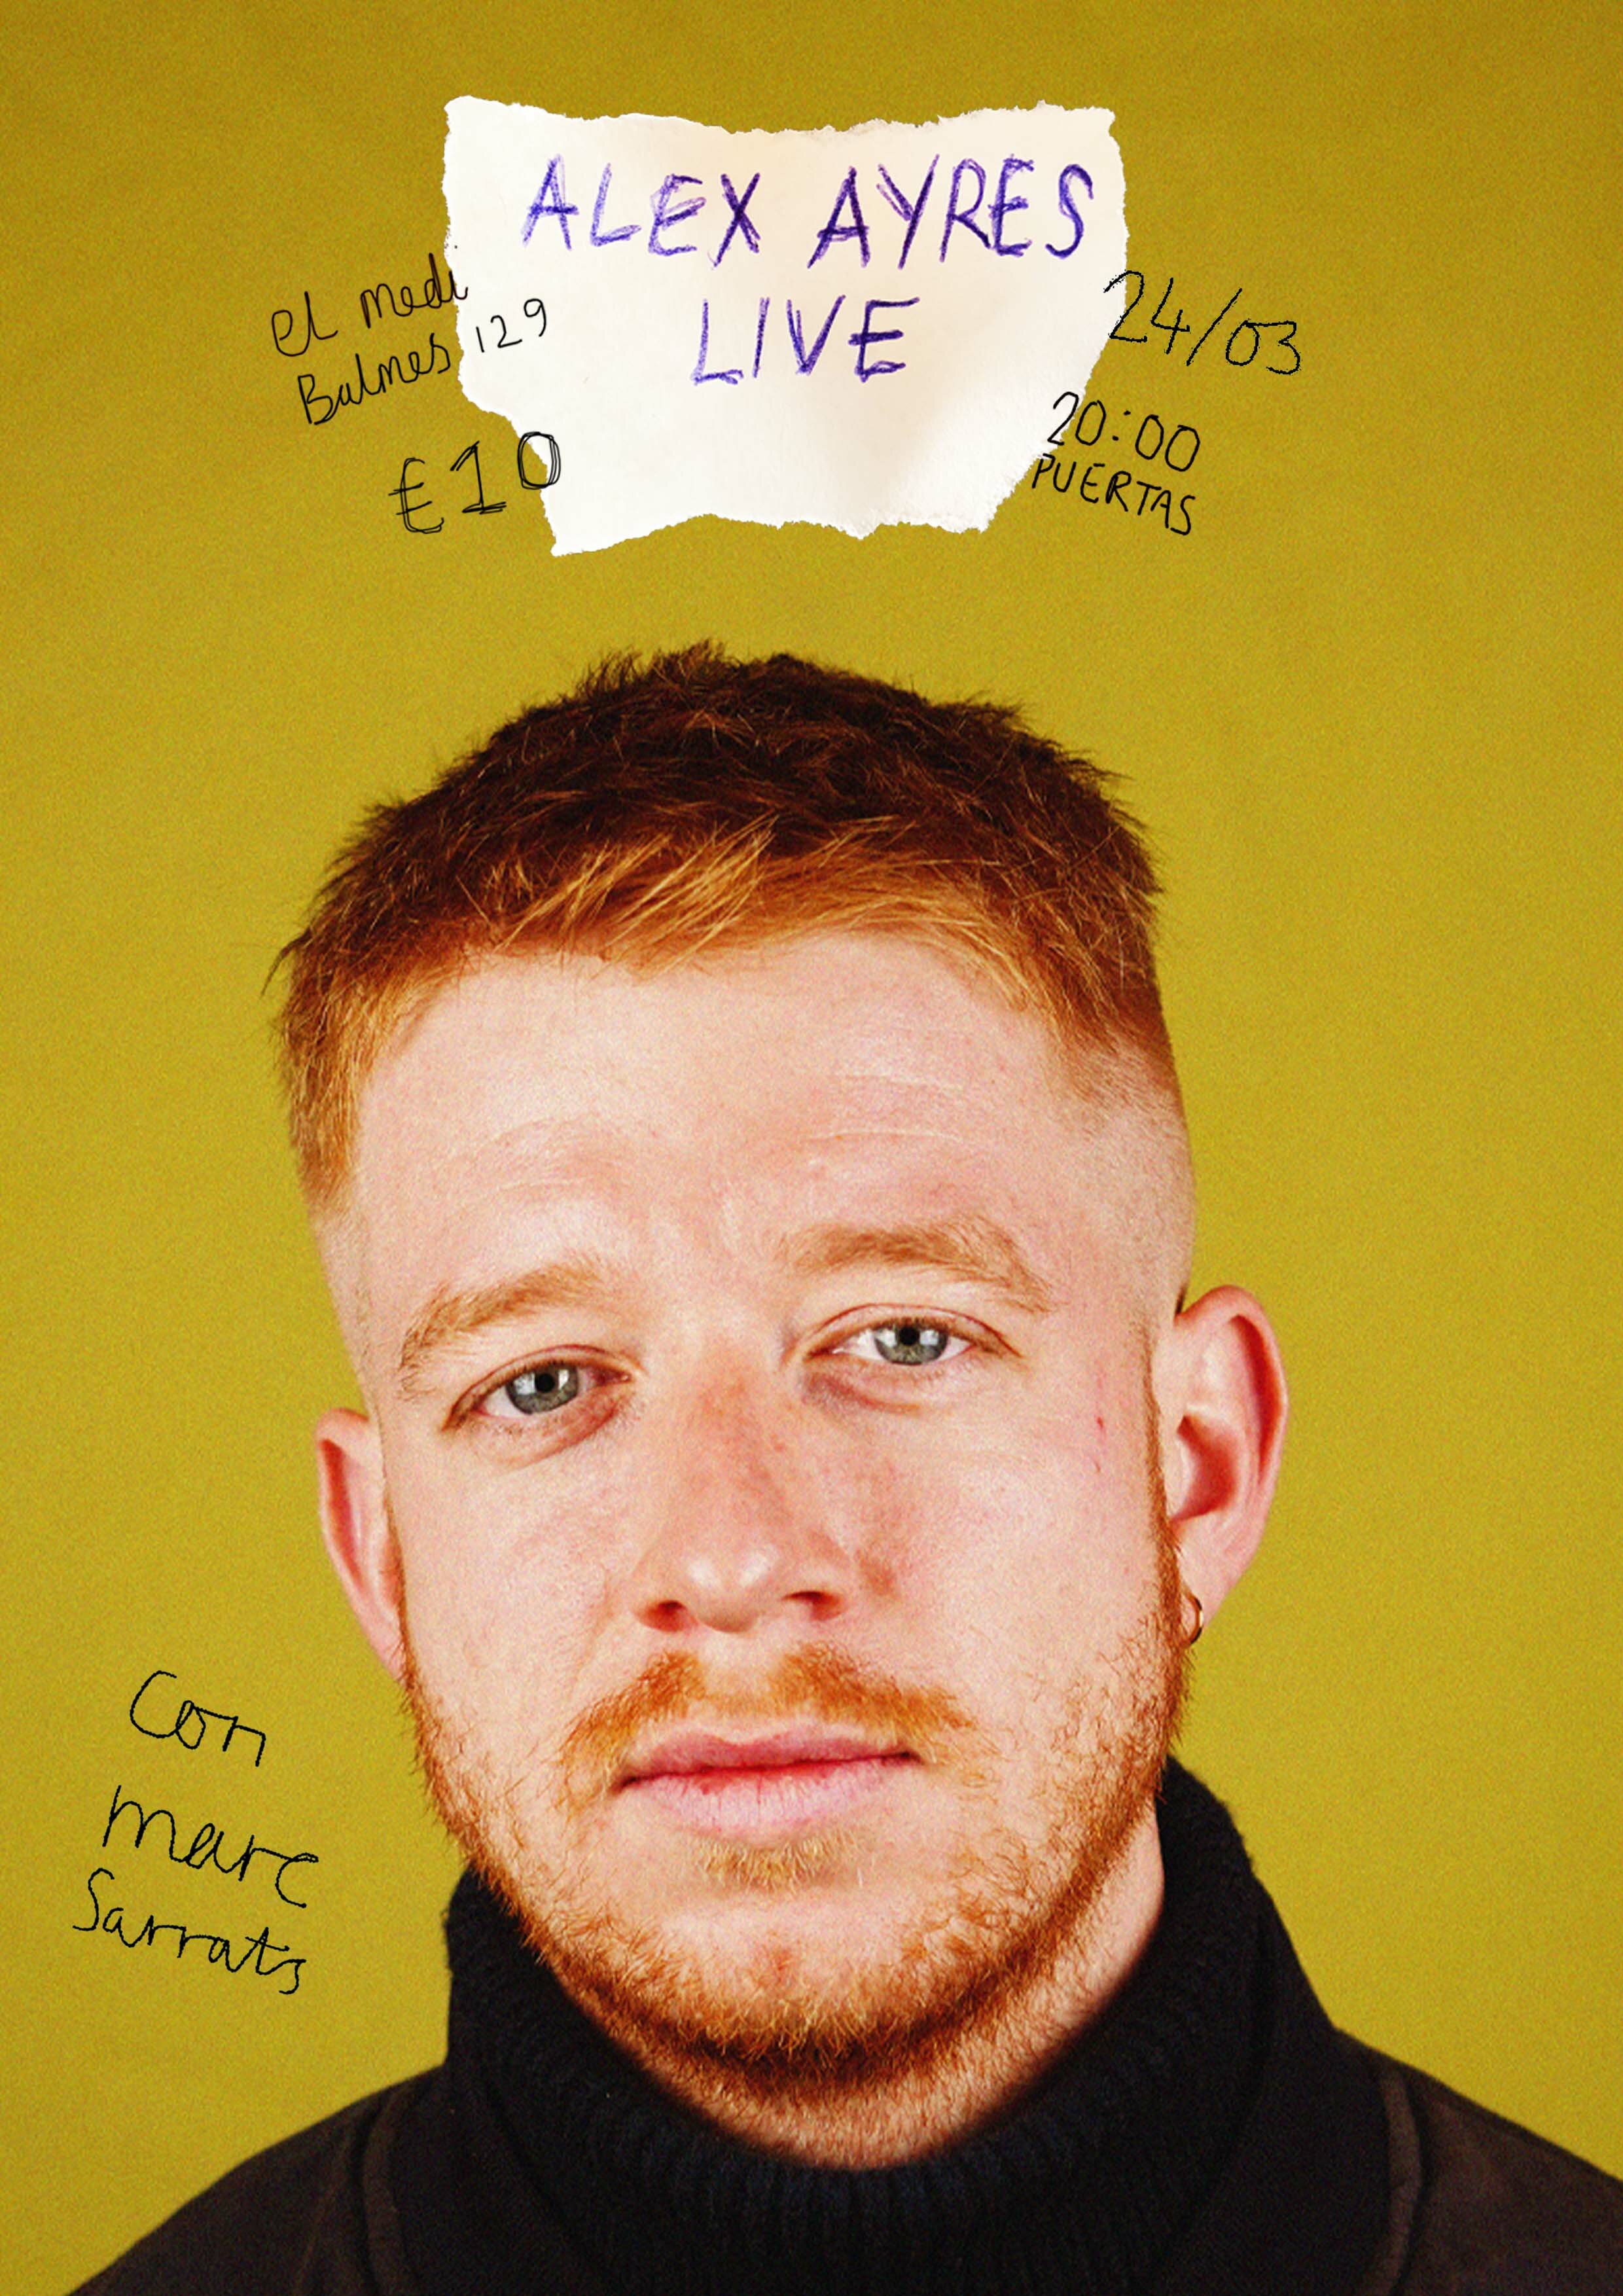 ALEX AYRES
LIVE
el medi
Balmes 129
€10
24/03
20:00
PUERTAS
Con
marc
Sarrats